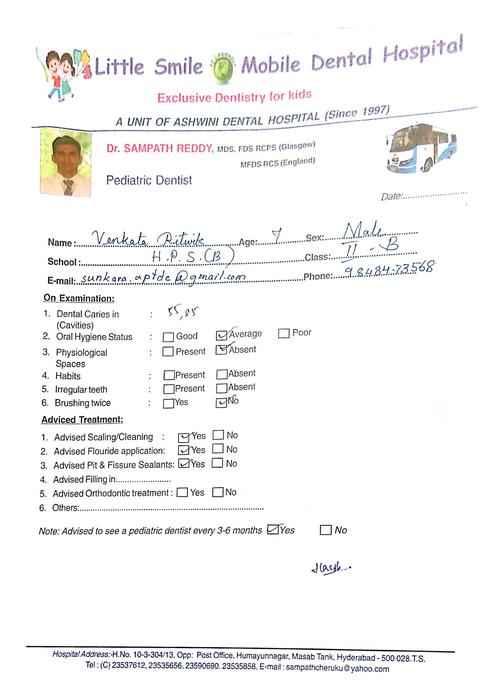 Little Smile Mobile Dental Hospital
Exclusive Dentistry for kids
A UNIT OF ASHWINI DENTAL HOSPITAL (Since 1997)
Dr. SAMPATH REDDY, MDS. FDS RCPS (Glasgow)
MFDS RCS (England)
Pediatric Dentist
Date:
Name: Venkata Ritwik Age: 7 Sex: Male
School: H.P.S.(B) Class: II - B
E-mail: sunkara.aptdc@gmail.com Phone: 98484-73568
On Examination:
1. Dental Caries in (Cavities) : 55, 85
2. Oral Hygiene Status Good Average Poor
3. Physiological Spaces : Present Absent
4. Habits : Present Absent
5. Irregular teeth : Present Absent
6. Brushing twice : Yes No
Adviced Treatment:
1. Advised Scaling/Cleaning : Yes No
2. Advised Flouride application: Yes No
3. Advised Pit & Fissure Sealants: Yes No
4. Advised Filling in
5. Advised Orthodontic treatment : Yes No
6. Others:
Note: Advised to see a pediatric dentist every 3-6 months Yes No
Hospital Address:-H.No. 10-3-304/13, Opp: Post Office, Humayunnagar, Masab Tank, Hyderabad - 500 028.T.S.
Tel : (C) 23537612, 23535656, 23590690. 23535858, E-mail : sampathcheruku@yahoo.com